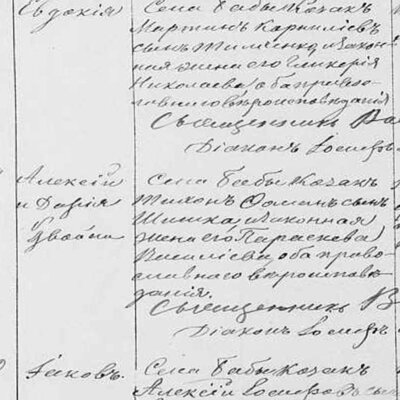 Евдокія
Села Бабы Козакъ
Мартинъ Карниліевъ
сынъ Тимченко, и закон
ная жена его Гликерія
Николаева, оба право
славнаго вѣроисповѣданія
Священникъ
Діаконъ Іосифъ
Алексѣй
и Дарія
двойни
Села Бабы Козакъ
Тихонъ Фоминъ сынъ
Шишка, и законная
жена его Параскева
оба право
славнаго вѣроисповѣ
данія.
Священникъ
Діаконъ Іосифъ
Іаковъ.
Села Бабы Козакъ
Алексѣй Іосифовъ сы